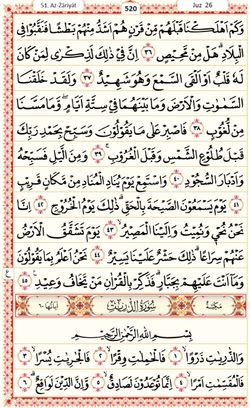 51. Az-Zāriyāt 520 Juz 26
وَكَمْ أَهْلَكْنَا قَبْلَهُم مِّن قَرْنٍ هُمْ أَشَدُّ مِنْهُم بَطْشًا فَنَقَّبُوا۟ فِى
ٱلْبِلَٰدِ هَلْ مِن مَّحِيصٍ ٣٦ إِنَّ فِى ذَٰلِكَ لَذِكْرَىٰ لِمَن كَانَ
لَهُۥ قَلْبٌ أَوْ أَلْقَى ٱلسَّمْعَ وَهُوَ شَهِيدٌ ٣٧ وَلَقَدْ خَلَقْنَا
ٱلسَّمَٰوَٰتِ وَٱلْأَرْضَ وَمَا بَيْنَهُمَا فِى سِتَّةِ أَيَّامٍ وَمَا مَسَّنَا
مِن لُّغُوبٍ ٣٨ فَٱصْبِرْ عَلَىٰ مَا يَقُولُونَ وَسَبِّحْ بِحَمْدِ رَبِّكَ
قَبْلَ طُلُوعِ ٱلشَّمْسِ وَقَبْلَ ٱلْغُرُوبِ ٣٩ وَمِنَ ٱلَّيْلِ فَسَبِّحْهُ
وَأَدْبَٰرَ ٱلسُّجُودِ ٤٠ وَٱسْتَمِعْ يَوْمَ يُنَادِ ٱلْمُنَادِ مِن مَّكَانٍ قَرِيبٍ
٤١ يَوْمَ يَسْمَعُونَ ٱلصَّيْحَةَ بِٱلْحَقِّ ذَٰلِكَ يَوْمُ ٱلْخُرُوجِ ٤٢ إِنَّا
نَحْنُ نُحْىِۦ وَنُمِيتُ وَإِلَيْنَا ٱلْمَصِيرُ ٤٣ يَوْمَ تَشَقَّقُ ٱلْأَرْضُ
عَنْهُمْ سِرَاعًا ذَٰلِكَ حَشْرٌ عَلَيْنَا يَسِيرٌ ٤٤ نَّحْنُ أَعْلَمُ بِمَا يَقُولُونَ
وَمَا أَنتَ عَلَيْهِم بِجَبَّارٍ فَذَكِّرْ بِٱلْقُرْءَانِ مَن يَخَافُ وَعِيدِ ٤٥
مكية سُورَةُ الذَّارِيَاتِ آياتها ٦٠
بِسْمِ ٱللَّهِ ٱلرَّحْمَٰنِ ٱلرَّحِيمِ
وَٱلذَّٰرِيَٰتِ ذَرْوًا ١ فَٱلْحَٰمِلَٰتِ وِقْرًا ٢ فَٱلْجَٰرِيَٰتِ يُسْرًا ٣
فَٱلْمُقَسِّمَٰتِ أَمْرًا ٤ إِنَّمَا تُوعَدُونَ لَصَادِقٌ ٥ وَإِنَّ ٱلدِّينَ لَوَٰقِعٌ ٦